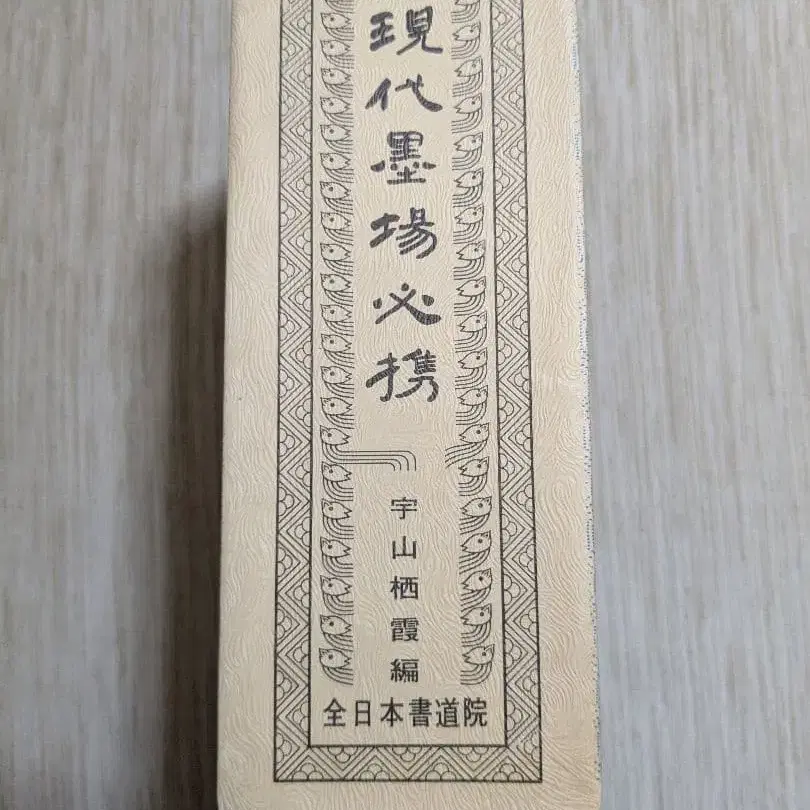 現代墨場必携
宇山栖霞編
全日本書道院